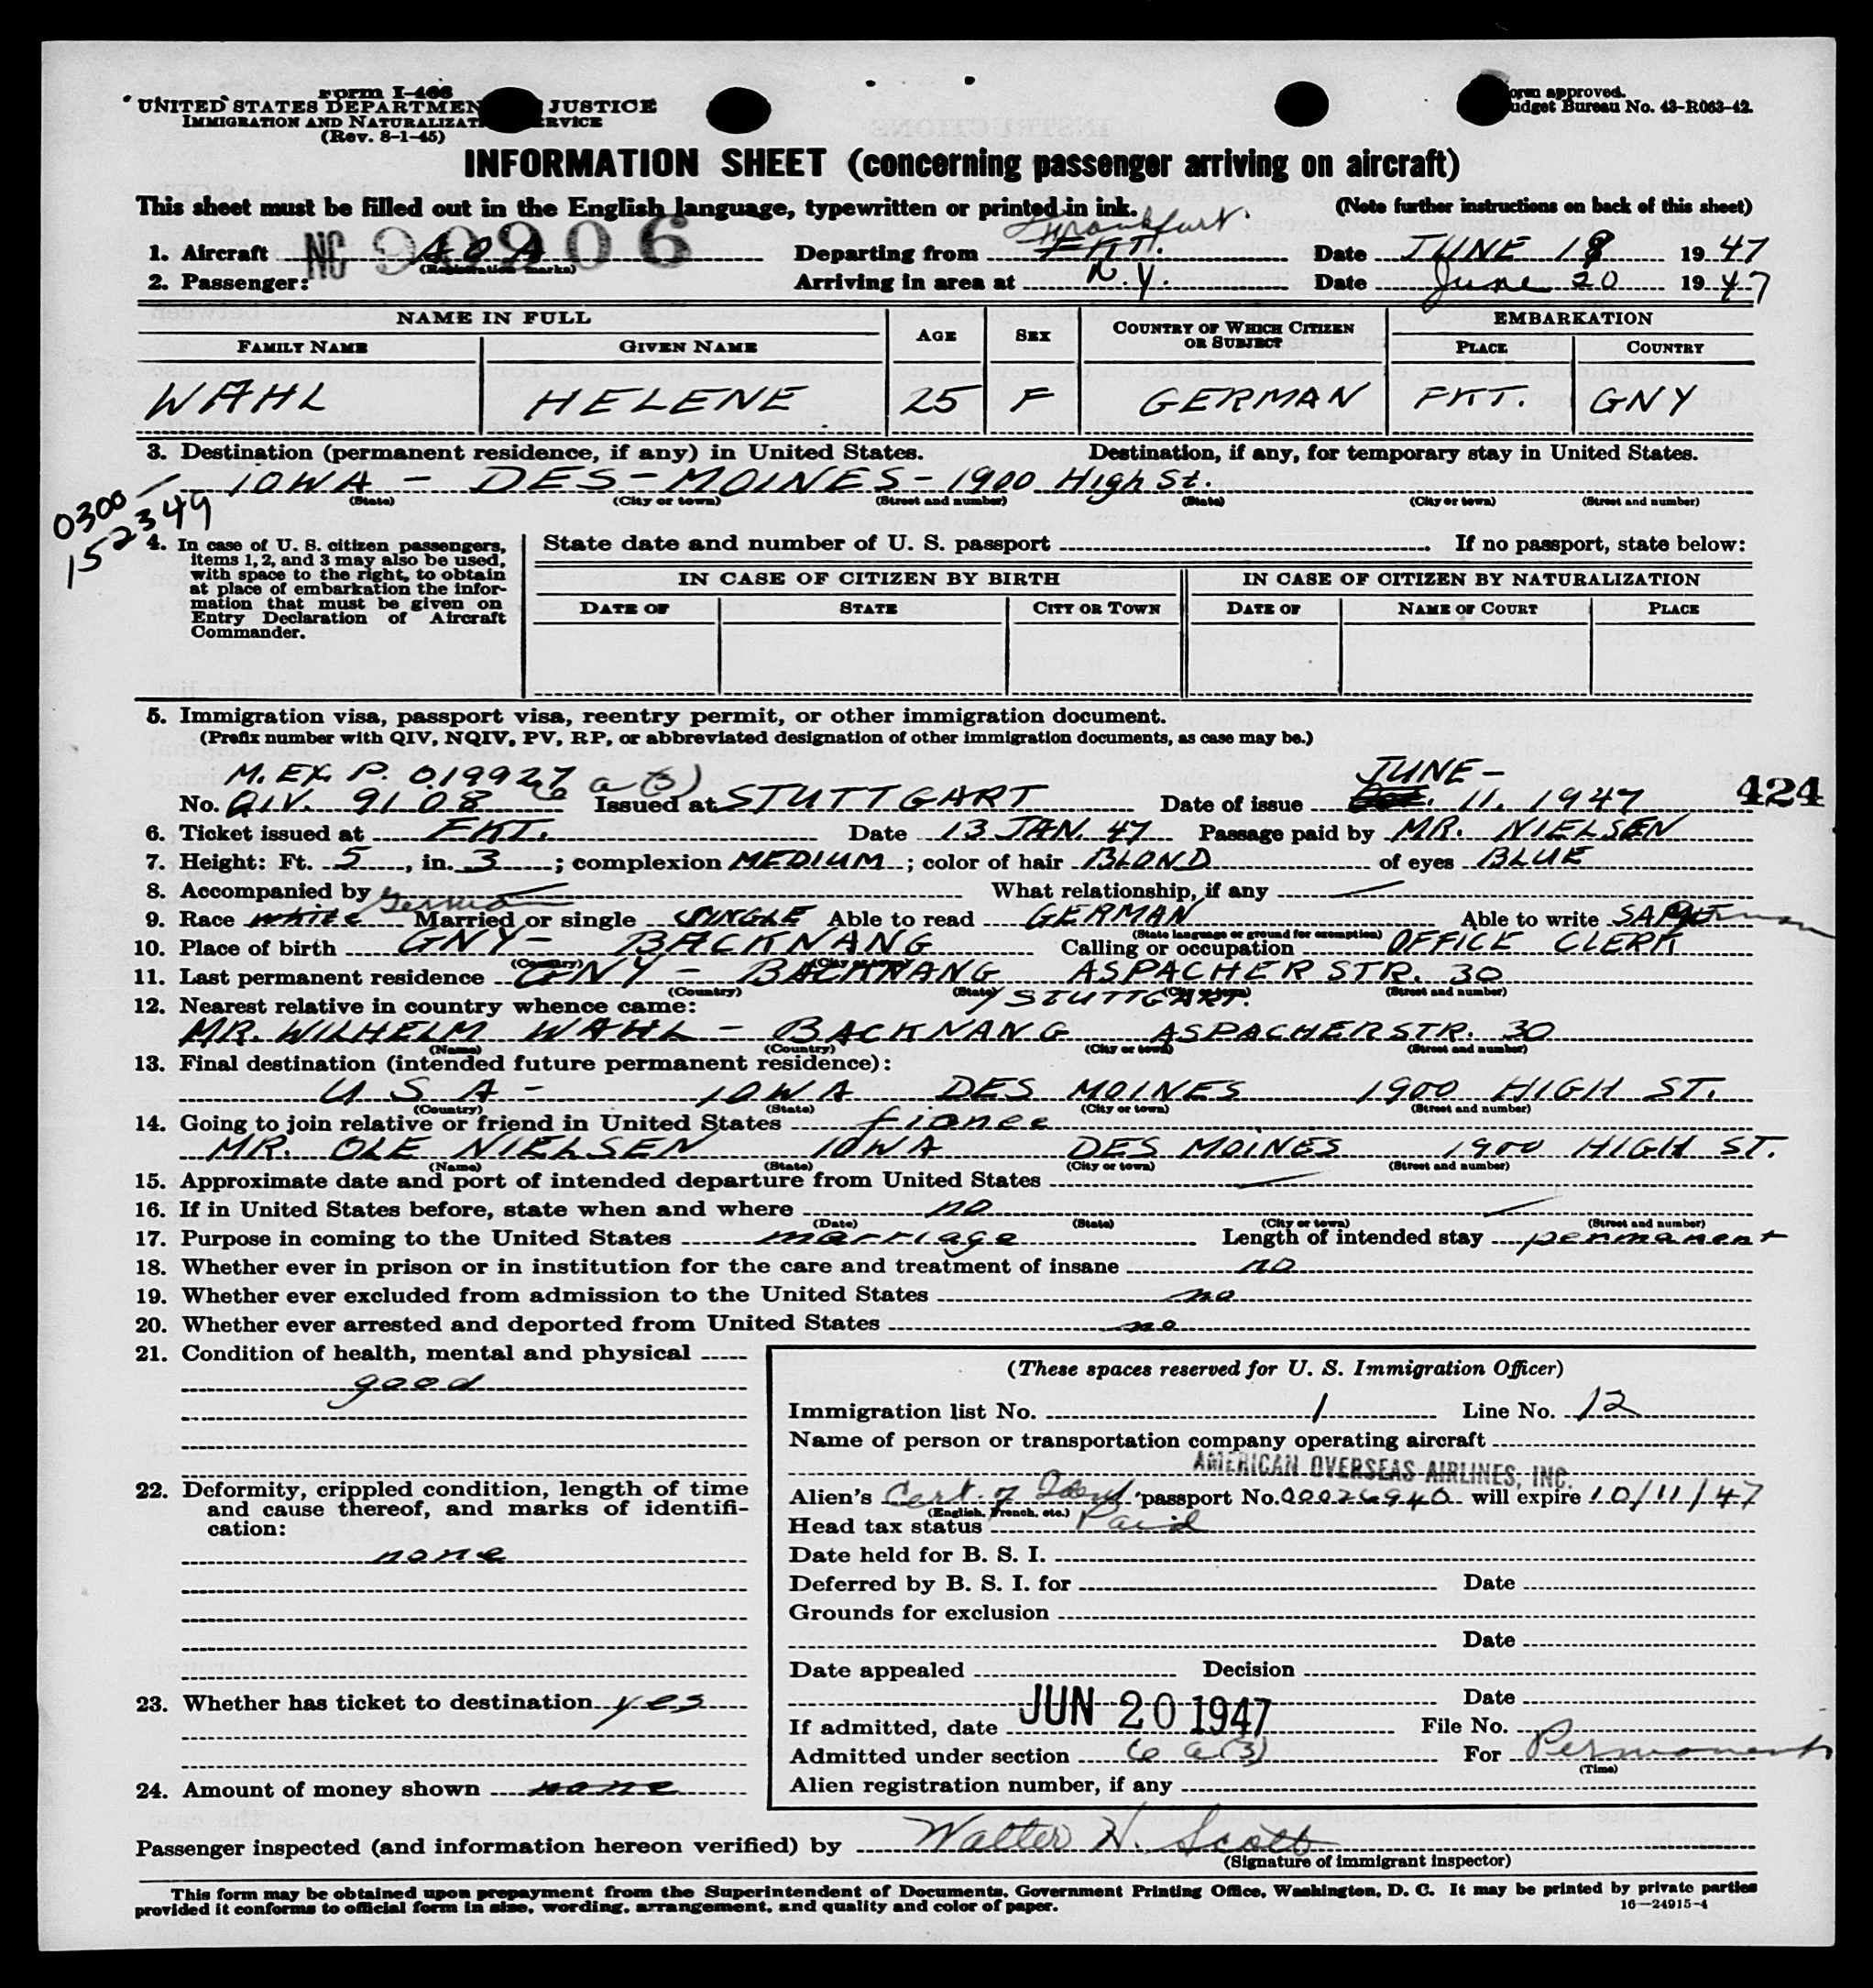 Form I-466
UNITED STATES DEPARTMEN JUSTICE
IMMIGRATION AND NATURALIZAT RVICE
(Rev. 8-1-45)
orm approved.
udget Bureau No. 43-R063-42.
INFORMATION SHEET (concerning passenger arriving on aircraft)
This sheet must be filled out in the English language, typewritten or printed in ink. (Note further instructions on back of this sheet)
Frankfurt.
1. Aircraft NC 90906 AOA (Registration marks) Departing from FKT. Date JUNE 18 1947
2. Passenger: Arriving in area at N.Y. Date June 20 1947
NAME IN FULL EMBARKATION
FAMILY NAME GIVEN NAME AGE SEX COUNTRY OF WHICH CITIZEN OR SUBJECT PLACE COUNTRY
WAHL HELENE 25 F GERMAN FKT. GNY
3. Destination (permanent residence, if any) in United States. Destination, if any, for temporary stay in United States.
IOWA - DES-MOINES - 1900 High St.
(State) (City or town) (Street and number) (State) (City or town) (Street and number)
0300
152349
4. In case of U. S. citizen passengers, items 1, 2, and 3 may also be used, with space to the right, to obtain at place of embarkation the information that must be given on Entry Declaration of Aircraft Commander.
State date and number of U. S. passport If no passport, state below:
IN CASE OF CITIZEN BY BIRTH IN CASE OF CITIZEN BY NATURALIZATION
DATE OF STATE CITY OR TOWN DATE OF NAME OF COURT PLACE
5. Immigration visa, passport visa, reentry permit, or other immigration document.
(Prefix number with QIV, NQIV, PV, RP, or abbreviated designation of other immigration documents, as case may be.)
M. EX. P. 019927 6 a (3) JUNE-
No. QIV. 9108 Issued at STUTTGART Date of issue 11. 1947 424
6. Ticket issued at FKT. Date 13 JAN. 47 Passage paid by MR. NIELSEN
7. Height: Ft. 5, in. 3; complexion MEDIUM; color of hair BLOND of eyes BLUE
8. Accompanied by What relationship, if any
9. Race white German Married or single SINGLE Able to read GERMAN Able to write SAME German
(State language or ground for exemption)
10. Place of birth GNY - BACKNANG Calling or occupation OFFICE CLERK
(Country) (City or town)
11. Last permanent residence GNY - BACKNANG ASPACHERSTR. 30
(Country) (State) (City or town) (Street and number)
12. Nearest relative in country whence came: / STUTTGART.
MR. WILHELM WAHL - BACKNANG ASPACHERSTR. 30
(Name) (Country) (City or town) (Street and number)
13. Final destination (intended future permanent residence):
U S A - IOWA DES MOINES 1900 HIGH ST.
(Country) (State) (City or town) (Street and number)
14. Going to join relative or friend in United States fiance
MR. OLE NIELSEN IOWA DES MOINES 1900 HIGH ST.
(Name) (State) (City or town) (Street and number)
15. Approximate date and port of intended departure from United States
16. If in United States before, state when and where no
(Date) (State) (City or town) (Street and number)
17. Purpose in coming to the United States marriage Length of intended stay permanent
18. Whether ever in prison or in institution for the care and treatment of insane no
19. Whether ever excluded from admission to the United States no
20. Whether ever arrested and deported from United States no
21. Condition of health, mental and physical
good
22. Deformity, crippled condition, length of time and cause thereof, and marks of identification:
none
23. Whether has ticket to destination yes
24. Amount of money shown none
(These spaces reserved for U. S. Immigration Officer)
Immigration list No. 1 Line No. 12
Name of person or transportation company operating aircraft
AMERICAN OVERSEAS AIRLINES, INC.
Alien's Cert. of Iden passport No. 00026940 will expire 10/11/47
(English, French, etc.)
Head tax status Paid
Date held for B. S. I.
Deferred by B. S. I. for Date
Grounds for exclusion
Date
Date appealed Decision
Date
If admitted, date JUN 20 1947 File No.
Admitted under section 6 a (3) For Permanent
(Time)
Alien registration number, if any
Passenger inspected (and information hereon verified) by Walter H. Scott
(Signature of immigrant inspector)
This form may be obtained upon prepayment from the Superintendent of Documents, Government Printing Office, Washington, D. C. It may be printed by private parties
provided it conforms to official form in size, wording, arrangement, and quality and color of paper. 16—24915-4